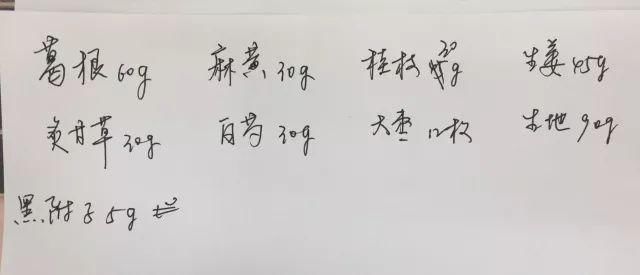 葛根60g 麻黄30g 桂枝30g 生姜45g
炙甘草30g 白芍30g 大枣12枚 生地90g
黑附子5g